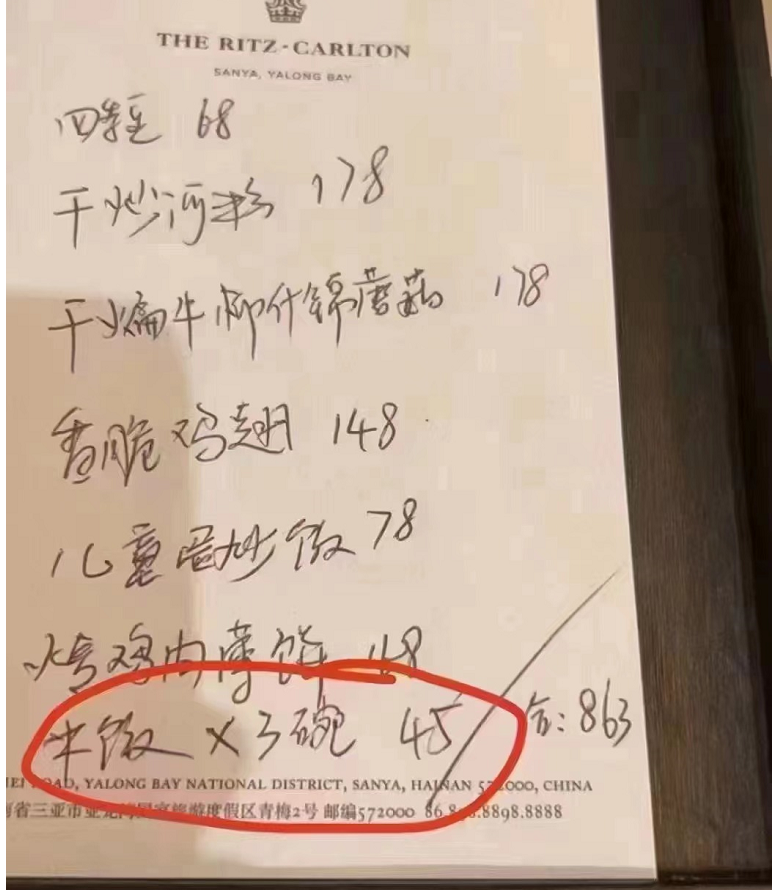 THE RITZ-CARLTON
SANYA, YALONG BAY
四季豆 68
干炒河粉 178
干煸牛柳什锦蘑菇 178
香脆鸡翅 148
儿童蛋炒饭 78
烤鸡肉薄饼 168
米饭 × 3碗 45 合: 863
ROAD, YALONG BAY NATIONAL DISTRICT, SANYA, HAINAN 572000, CHINA
省三亚市亚龙湾国家旅游度假区青梅2号 邮编572000 86.898.8898.8888